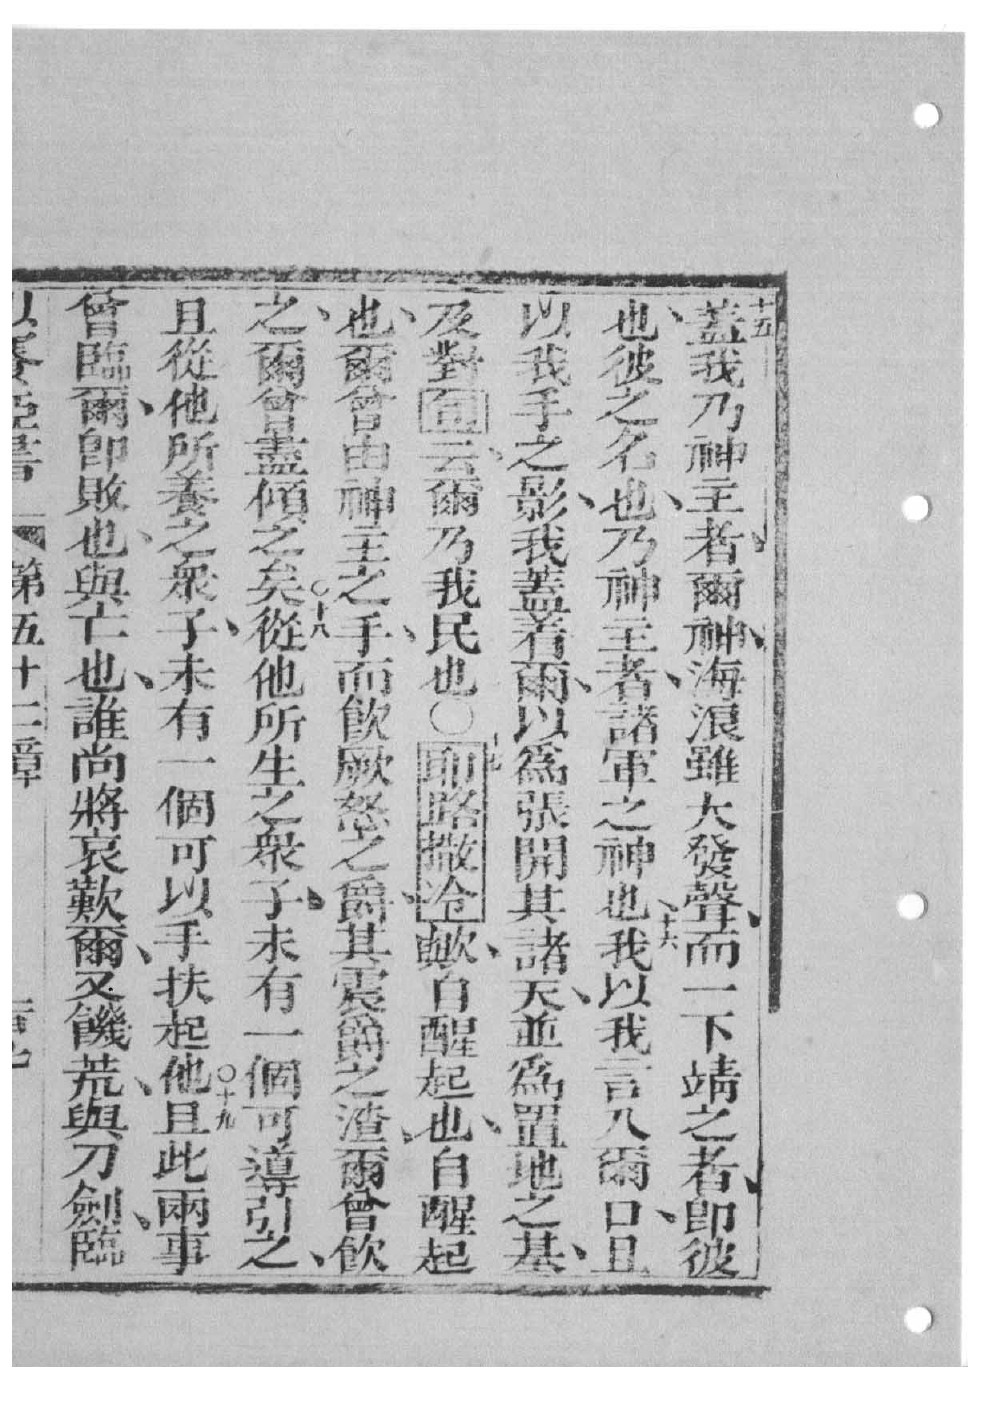 十五蓋我乃神主者爾神、海浪雖大發聲、而一下靖之者、即彼
也、彼之名也、乃神主者、諸軍之神也、十六我以我言入爾口、且
以我手之影、我蓋着爾、以爲張開其諸天、並爲置地之基、
及對云、爾乃我民也〇十七耶路撒冷歟、自醒起也、自醒起
也、爾曾由神主之手、而飲厥怒之爵、其震爵之渣、爾曾飲
之、爾曾盡傾之矣〇十八從他所生之衆子、未有一個可導引之、
且從他所養之衆子、未有一個可以手扶起他〇十九且此兩事
曾臨爾、即敗也、與亡也、誰尚將哀歎爾、又饑荒、與刀劍、臨
以賽亞書 第五十一章